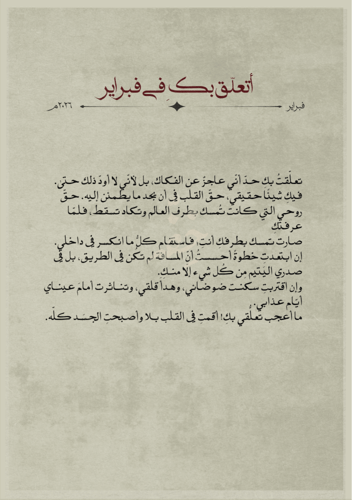 أتعلّق بك في فبراير
فبراير
٢٠٢٦م
تعلّقتُ بكِ حدّ أنّي عاجزٌ عن الفكاك، بل لأنّي لا أودّ ذلك حتى.
فيكِ شيئًا حقيقي، حقّ القلب في أن يجد ما يطمئن إليه، حقّ
روحي التي كانت تمسك بطرف العالم وتكاد تسقط، فلمّا
عرفتك
صارت تمسك بطرفك أنتِ، فاستقام كلُّ ما انكسر في داخلي.
إن ابتعدتِ خطوةً أحسستُ أنّ المسافة لم تكن في الطريق، بل في
صدري اليتيم من كل شيءٍ إلا منك.
وإن اقتربتِ سكنت ضوضائي، وهدأ قلقي، وتناثرت أمامَ عيناي
أيّام عذابي.
ما أعجب تعلّقي بكِ! أقمتِ في القلب بلا وأصبحتِ الجسد كلّه.